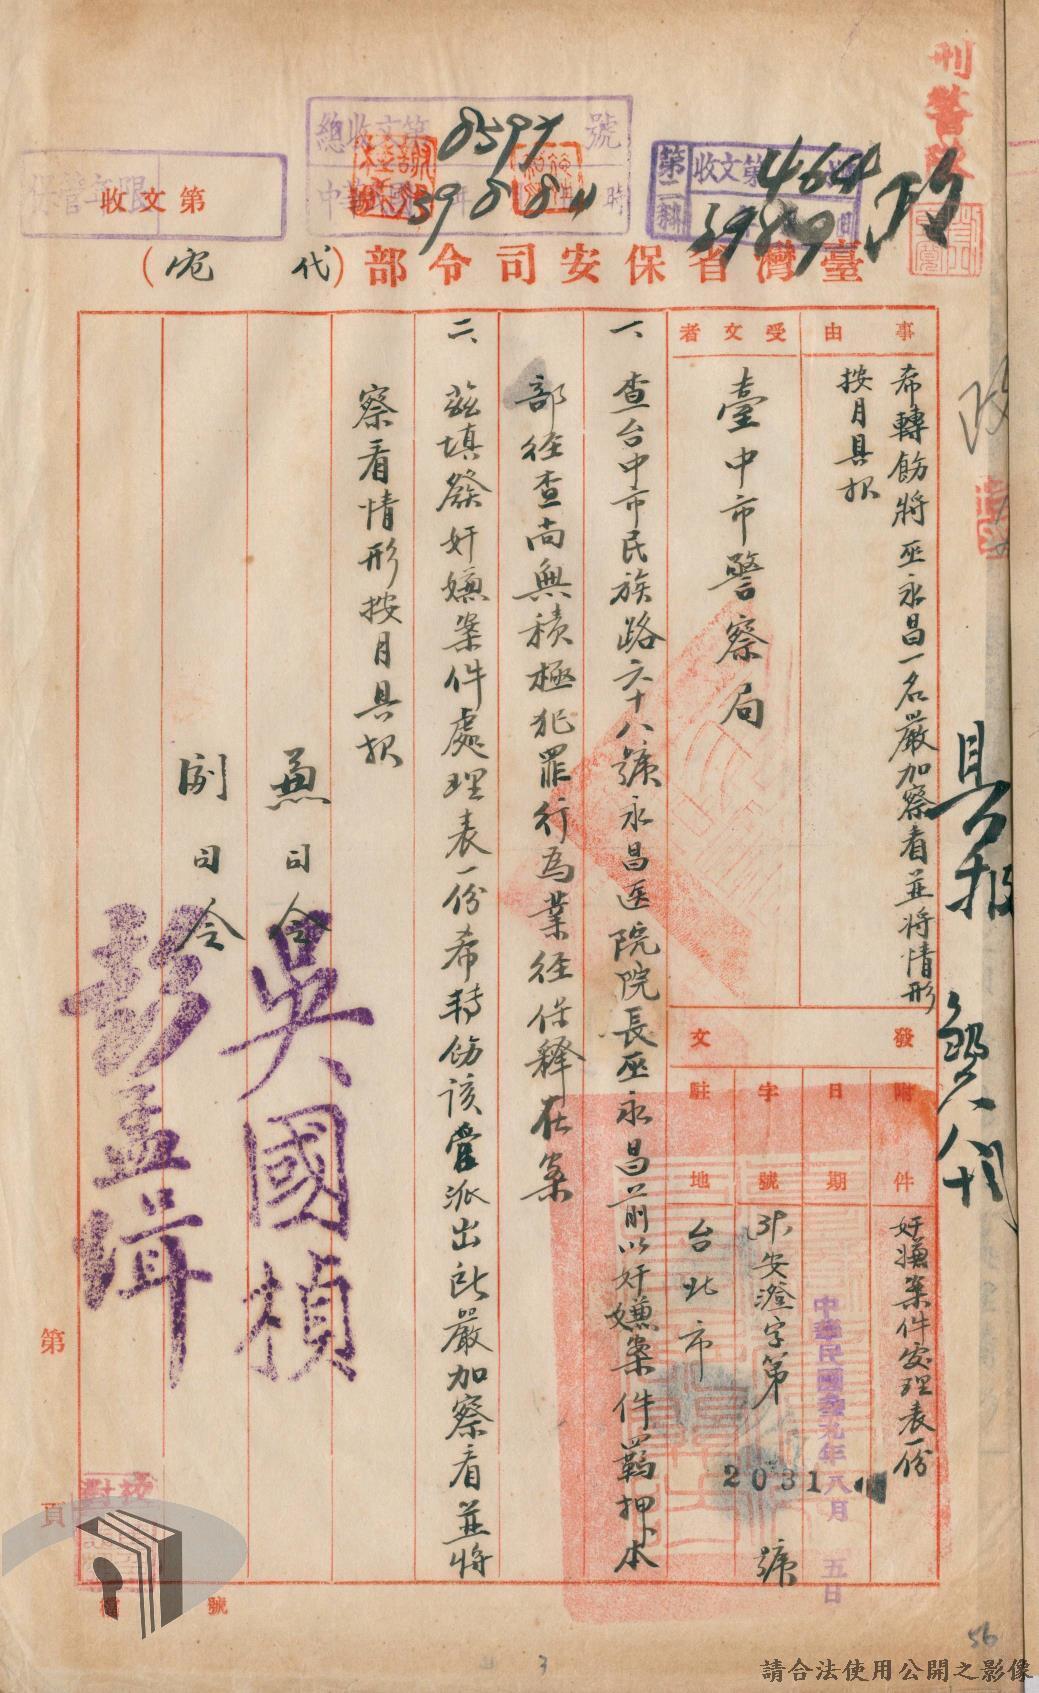 刑警隊
總收文第8597號
39 8 8 11時
第二科
收文第464
39 8 9
保管年限
收文第
臺灣省保安司令部(代)
事由
希轉飭將巫永昌一名嚴加察看並將情形
按月具报
受文者
臺中市警察局
發文
附件
奸嫌案件處理表一份
日期
中華民國叁九年八月五日
字號
安澄字第2031號
駐地
台北市
一、查台中市民族路六十八號永昌医院院長巫永昌前以奸嫌案件羈押本
部经查尚無積極犯罪行為業经保釋在案
二、茲填發奸嫌案件處理表一份希转飭該管派出所嚴加察看並將
察看情形按月具报
兼司令
吳國楨
副司令
彭孟緝
具报
第
頁
校對
號
56
3
請合法使用公開之影像